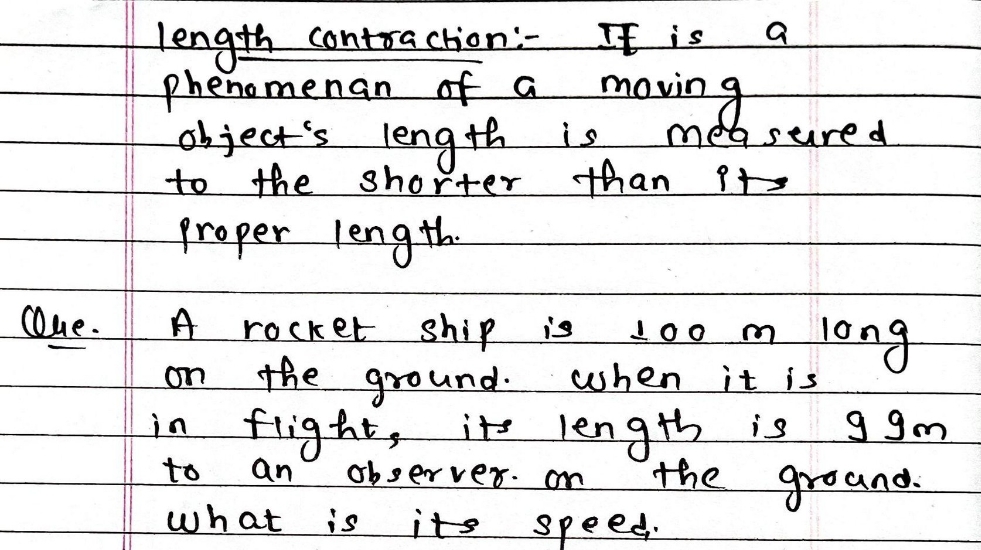 length contraction:- It is a
phenomenan of a moving
object's length is measured
to the shorter than its
proper length.
Que. A rocket ship is 100 m long
on the ground. when it is
in flight, its length is 99m
to an observer. on the ground.
what is its speed.